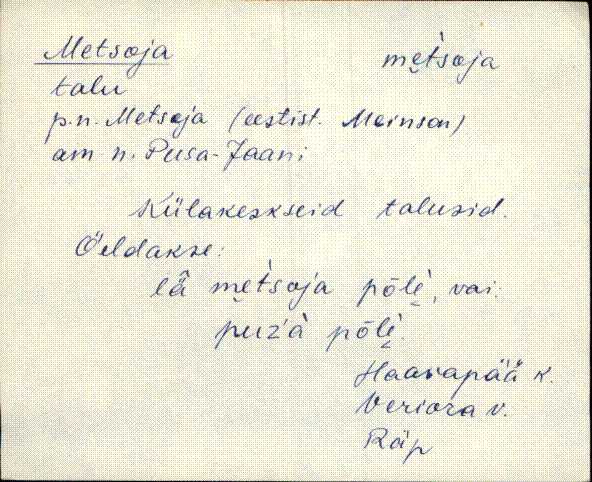 Metsoja met́soja
talu
p.n. Metsoja (eestist. Meinson)
am n. Pusa-Jaani
Külakeskseid talusid.
Öeldakse:
lä̂ met́soja põlè, vai
puzà põlè.
Haavapää k.
Veriora v.
Räp